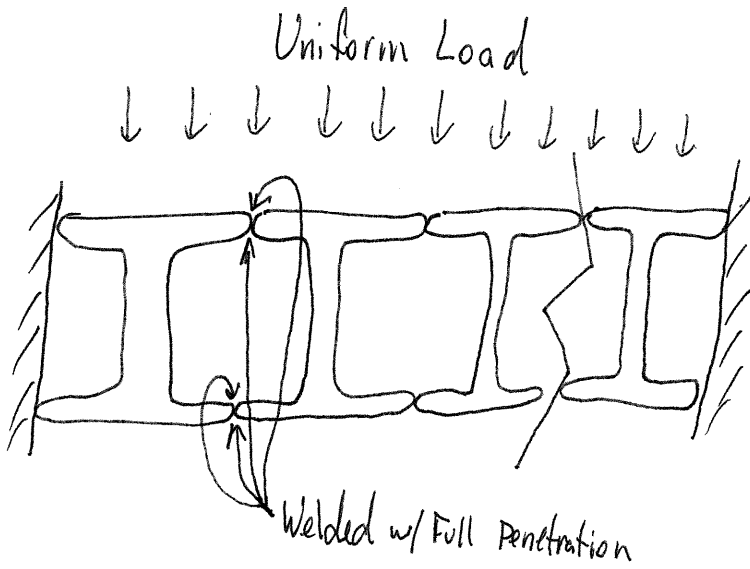 Uniform Load
Welded w/ Full Penetration